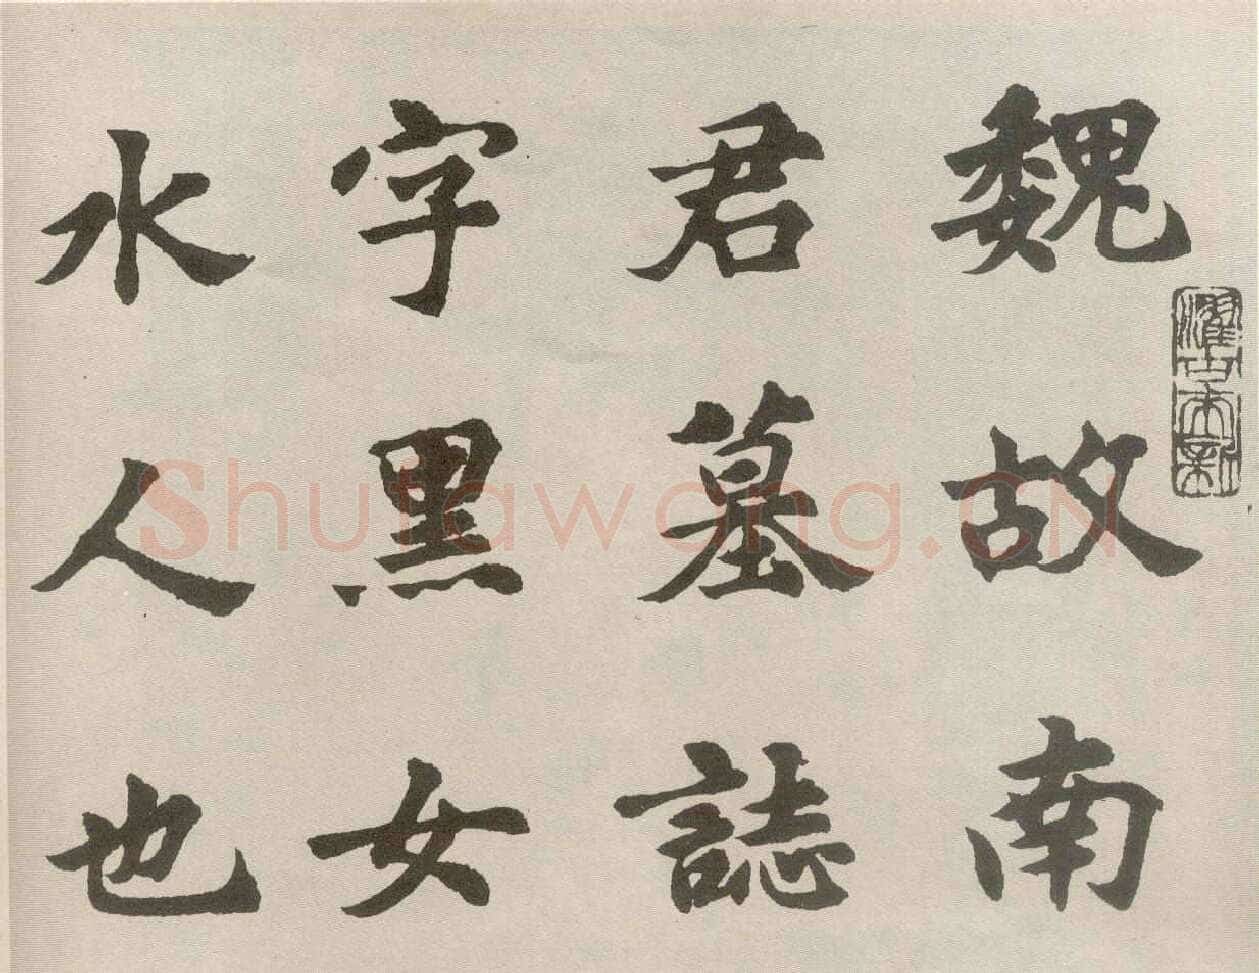 魏故南
君墓誌
字黑女
水人也
Shufawang.CN